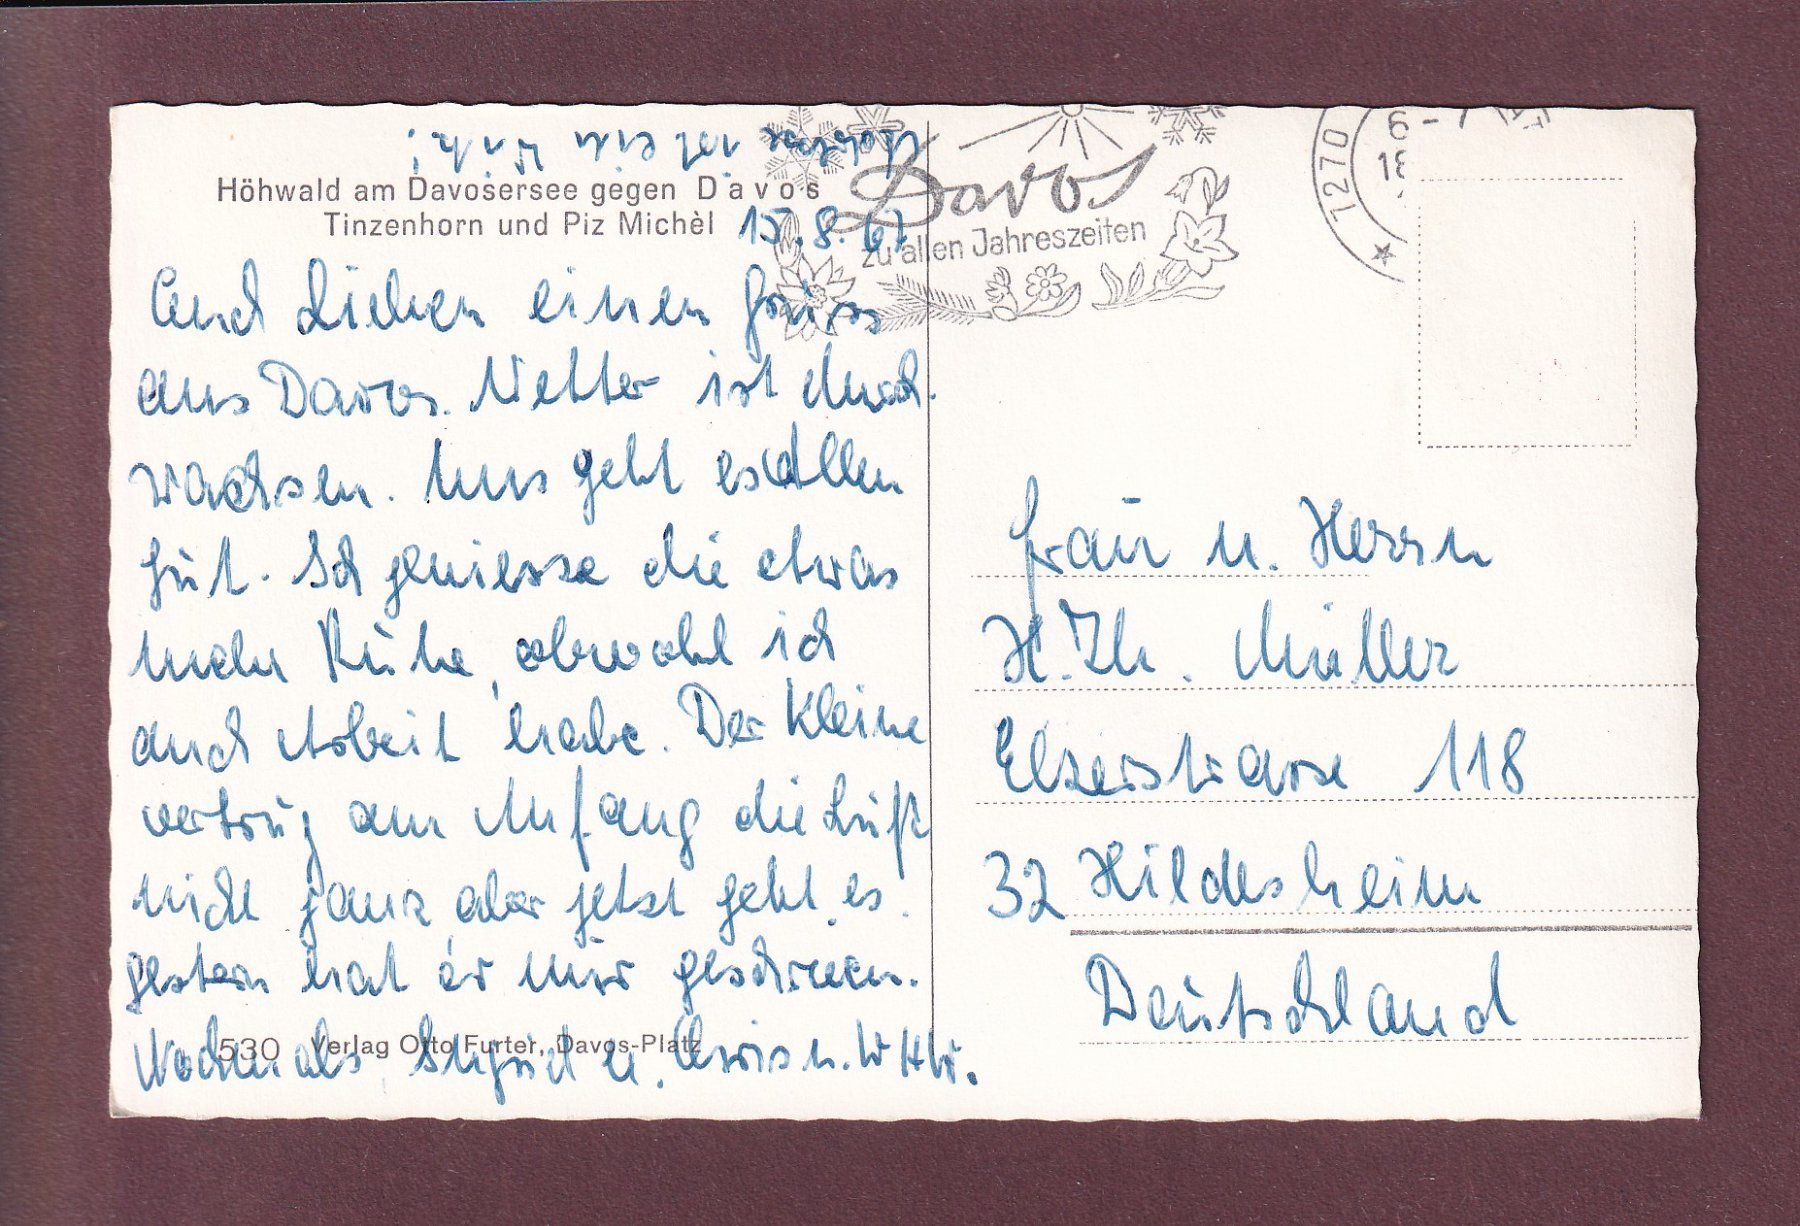 Höhwald am Davosersee gegen Davos
Tinzenhorn und Piz Michèl
15.8.67
Euch Lieben einen Gruss
aus Davos. Wetter ist durch-
wachsen. Uns geht es allen
gut. Ich geniesse die etwas
mehr Ruhe, obwohl ich
auch Arbeit habe. Der Kleine
vertrug am Anfang die Luft
nicht ganz, aber jetzt geht es.
Gestern hat er mir
Nochmals u.
530 Verlag Otto Furter, Davos-Platz
Davos
zu allen Jahreszeiten
7270
Frau u. Herrn
H. Th. Müller
Elzerstrasse 118
32 Hildesheim
Deutschland